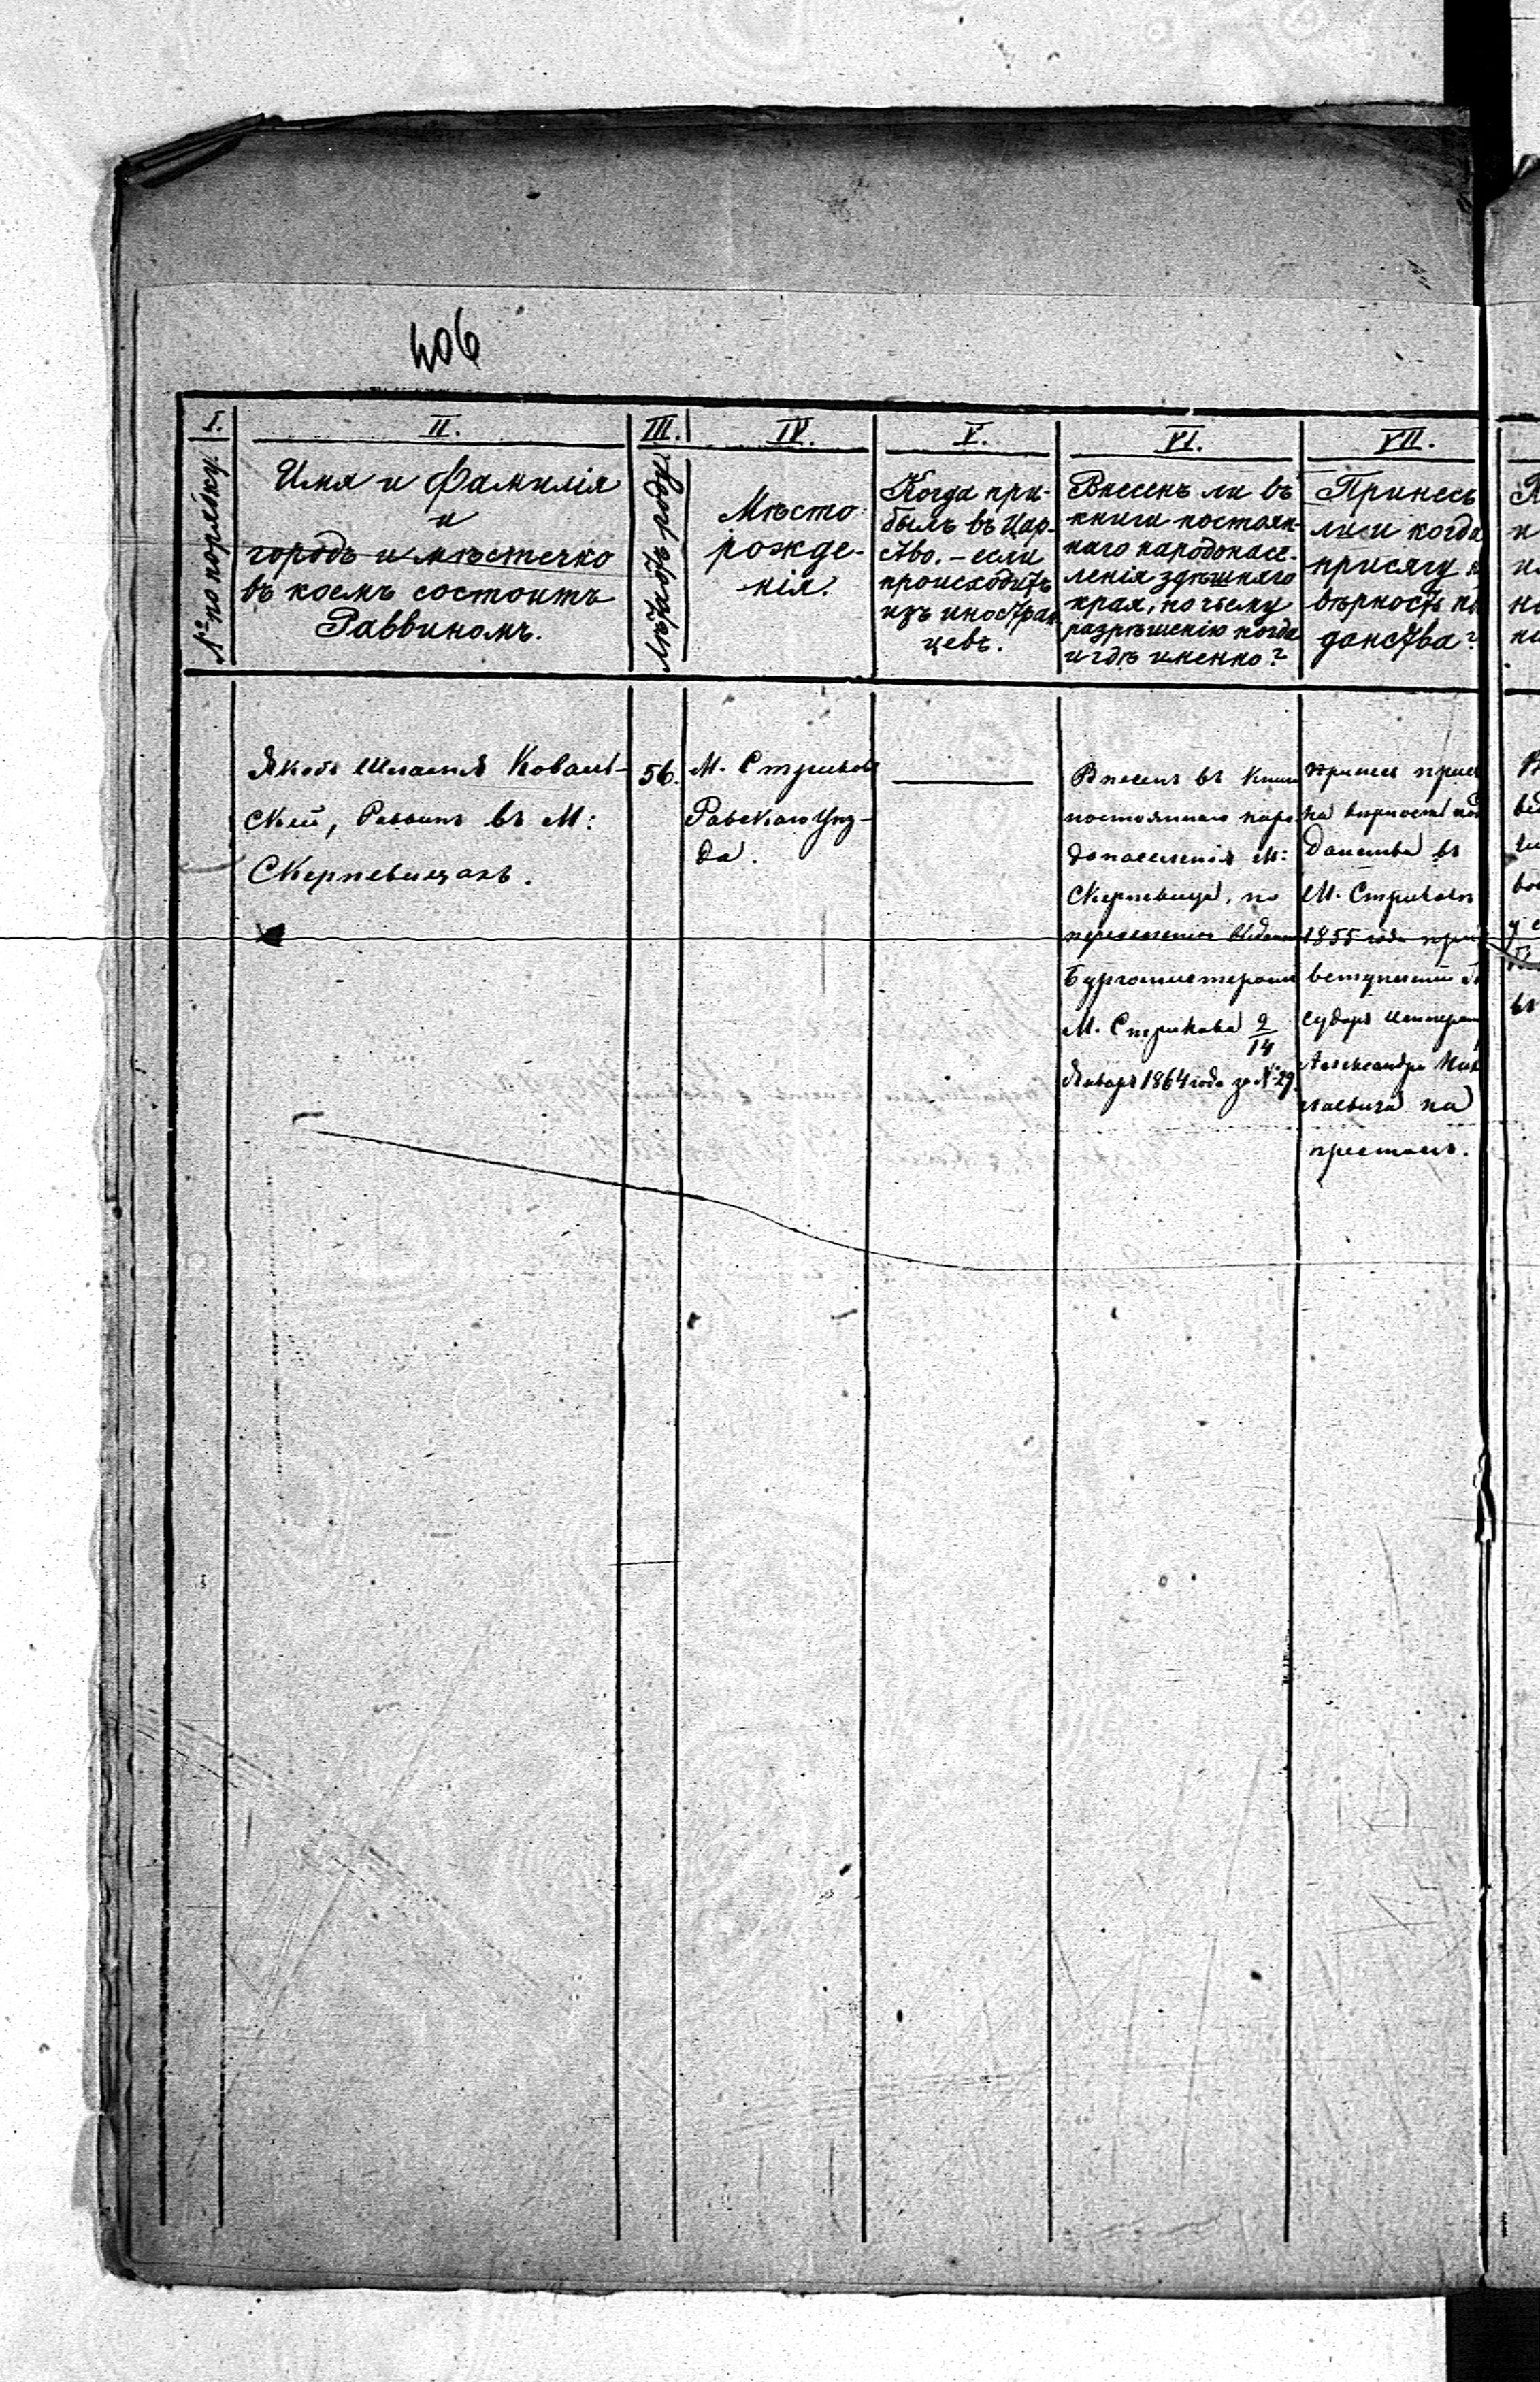 406
I.
№ по порядку.
II.
Имя и Фамилія
и
городъ и мѣстечко
въ коемъ состоитъ
Раввиномъ.
III.
Лѣтъ отъ роду
IV.
Мѣсто
рожде-
нія.
V.
Когда при-
былъ въ Цар-
ство. – если
происходитъ
изъ иностран
цевъ.
VI.
Внесенъ ли въ
книги постоян-
наго народонасе-
ленія здѣшняго
края, по чьему
разрѣшенію когда
и гдѣ именно?
VII.
Принесъ
ли и когда
присягу на
вѣрность по
данства?
Якобъ Коваль-
скій, Раввинъ въ М:
Скерневицахъ.
56.
М. Стриковъ
Равскаго Уѣз-
да.
Внесенъ въ Книги
постояннаго наро-
донаселенія М:
Скерневицъ, по
Бургомистромъ
М. Стрикова 2/14
Января 1864 года за № 29.
Принесъ прися
на вѣрность под
данства въ
М. Стриковъ
1855 года при
вступленіи Го
сударя Императ
Александра Ник
лаевича на
престолъ.